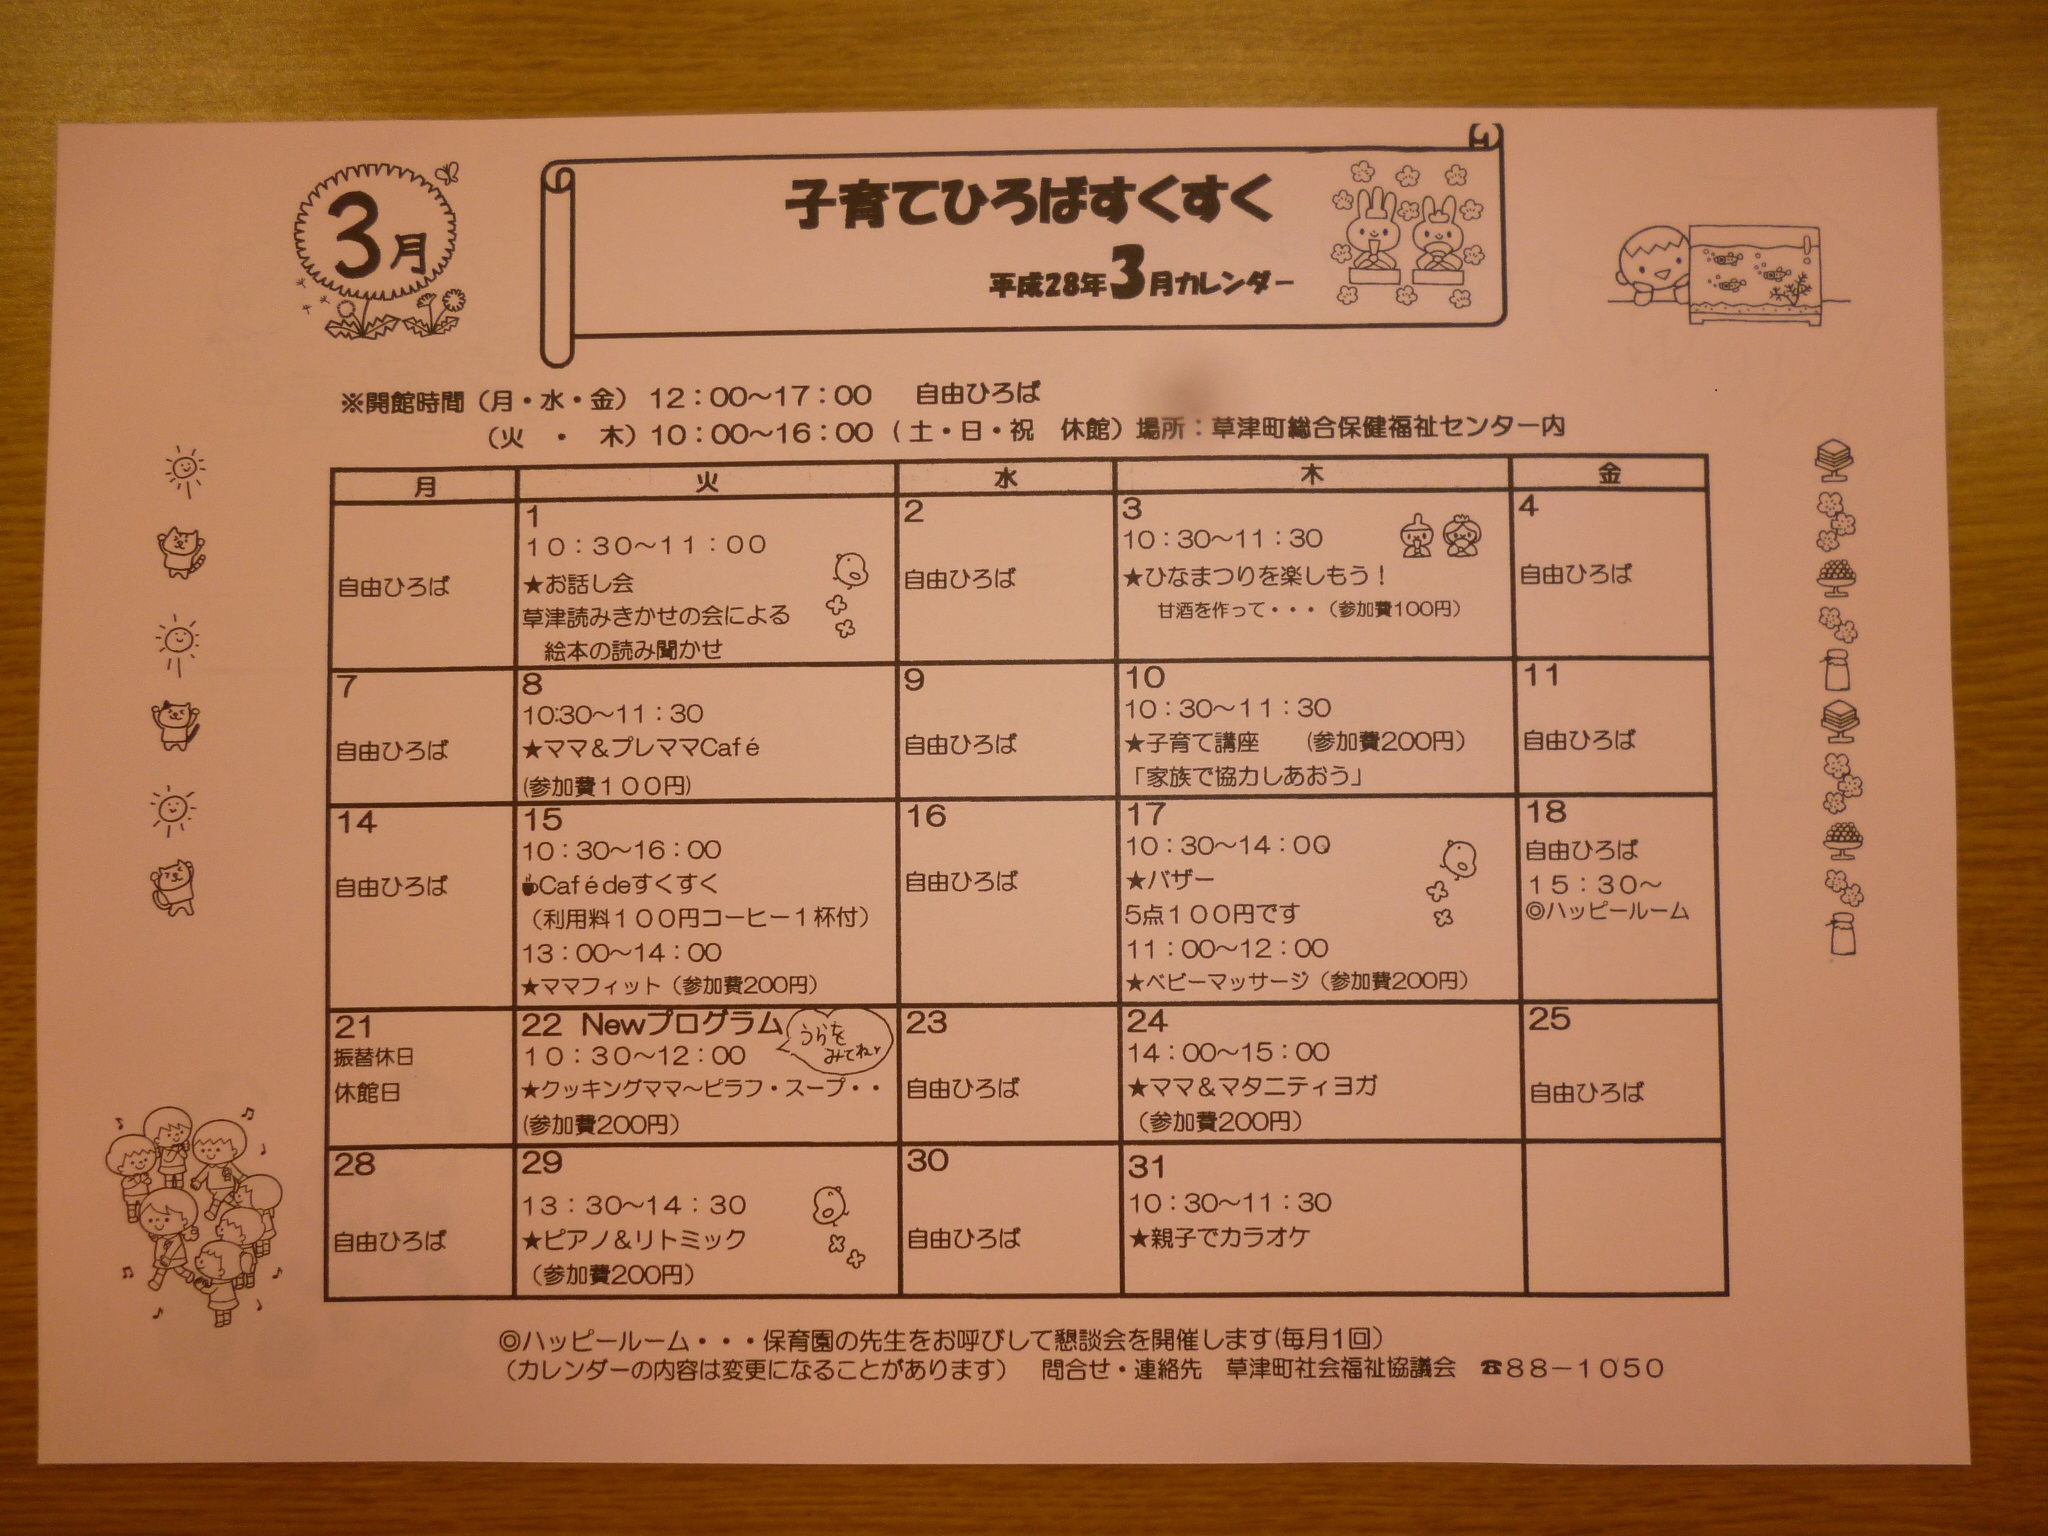 3月
子育てひろばすくすく
平成28年3月カレンダー
※開館時間（月・水・金）12：00～17：00　自由ひろば
（火　・　木）10：00～16：00（土・日・祝　休館）場所：草津町総合保健福祉センター内
月　火　水　木　金
自由ひろば
1
10：30～11：00
★お話し会
草津読みきかせの会による
絵本の読み聞かせ
2
自由ひろば
3
10：30～11：30
★ひなまつりを楽しもう！
甘酒を作って・・・（参加費100円）
4
自由ひろば
7
自由ひろば
8
10:30～11：30
★ママ＆プレママCafé
(参加費１００円)
9
自由ひろば
10
10：30～11：30
★子育て講座　（参加費200円）
「家族で協力しあおう」
11
自由ひろば
14
自由ひろば
15
10：30～16：00
☕Cafédeすくすく
（利用料１００円コーヒー１杯付）
13：00～14：00
★ママフィット（参加費200円）
16
自由ひろば
17
10：30～14：00
★バザー
5点１００円です
11：00～12：00
★ベビーマッサージ（参加費200円）
18
自由ひろば
１５：３０～
◎ハッピールーム
21
振替休日
休館日
22 Newプログラム
うらを
みてね
10：30～12：00
★クッキングママ～ピラフ・スープ・・
(参加費200円）
23
自由ひろば
24
14：00～15：00
★ママ＆マタニティヨガ
（参加費200円）
25
自由ひろば
28
自由ひろば
29
13：30～14：30
★ピアノ＆リトミック
（参加費200円）
30
自由ひろば
31
10：30～11：30
★親子でカラオケ
◎ハッピールーム・・・保育園の先生をお呼びして懇談会を開催します(毎月1回）
（カレンダーの内容は変更になることがあります）　問合せ・連絡先　草津町社会福祉協議会　☎８８－１０５０